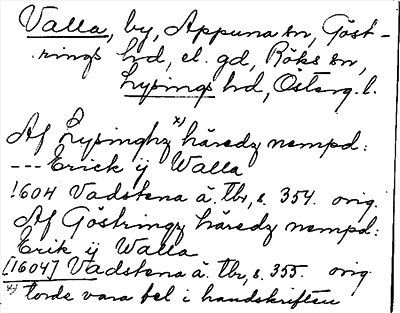 Valla, by, Appuna sn, Göst-
rings hd, el. gd, Röks sn,
Lysings hd, Österg. l.
Af Lysinghz x) häredz nempd:
--- Erick ij Walla
1604 Vadstena ä. Tbr, s. 354. orig.
Af Göstringz häredz nempd:
Erik ij Walla
[1604] Vadstena ä. Tbr, s. 355. orig.
x) torde vara fel i handskriften